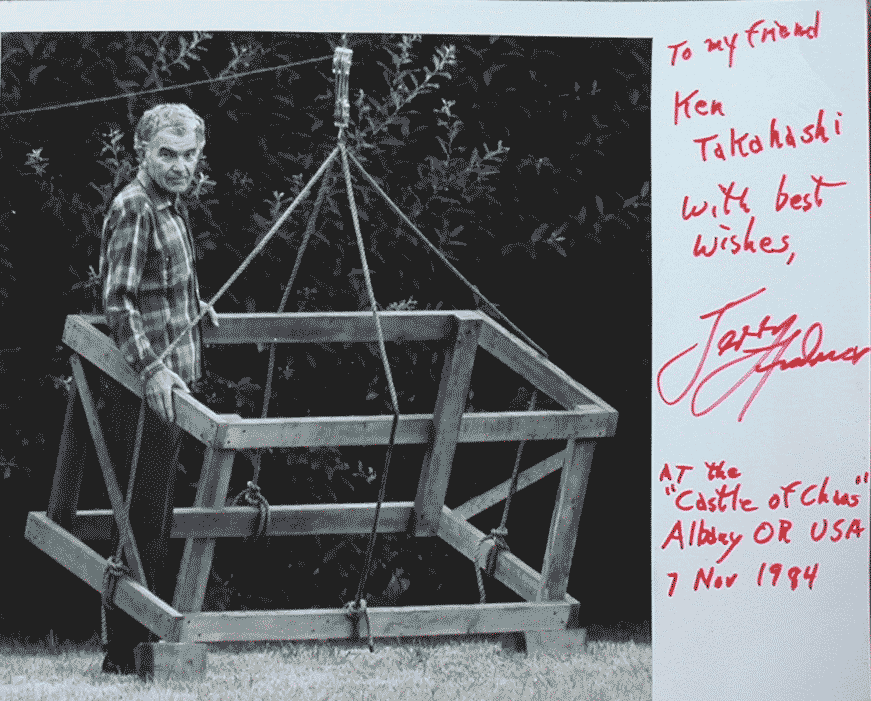 To my friend
Ken
Takahashi
with best
wishes,
Jerry Andrus
AT the
"Castle of Chaos"
Albany OR USA
7 Nov 1984